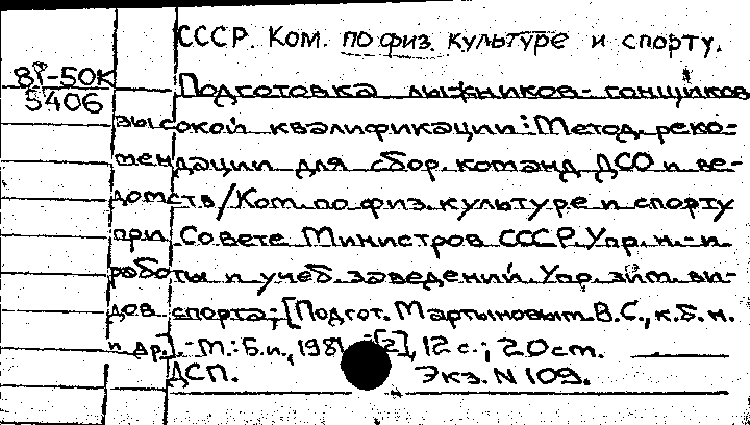 СССР. Ком. по физ. культуре и спорту.
81-50К
5406
Подготовка лыжников-гонщиков
высокой квалификации: Метод. реко-
мендации для сбор. команд ДСО и ве-
домств/Ком. по физ. культуре и спорту
при Совете Министров СССР. Упр. н.-и.
работы и учеб. заведений. Упр. зим. ви-
дов спорта; [Подгот. Мартыновым В.С., к.б.н.
и др.]. - М.: Б.и., 1981. - [2], 12 с.; 20 см.
ДСП. Экз. N 109.